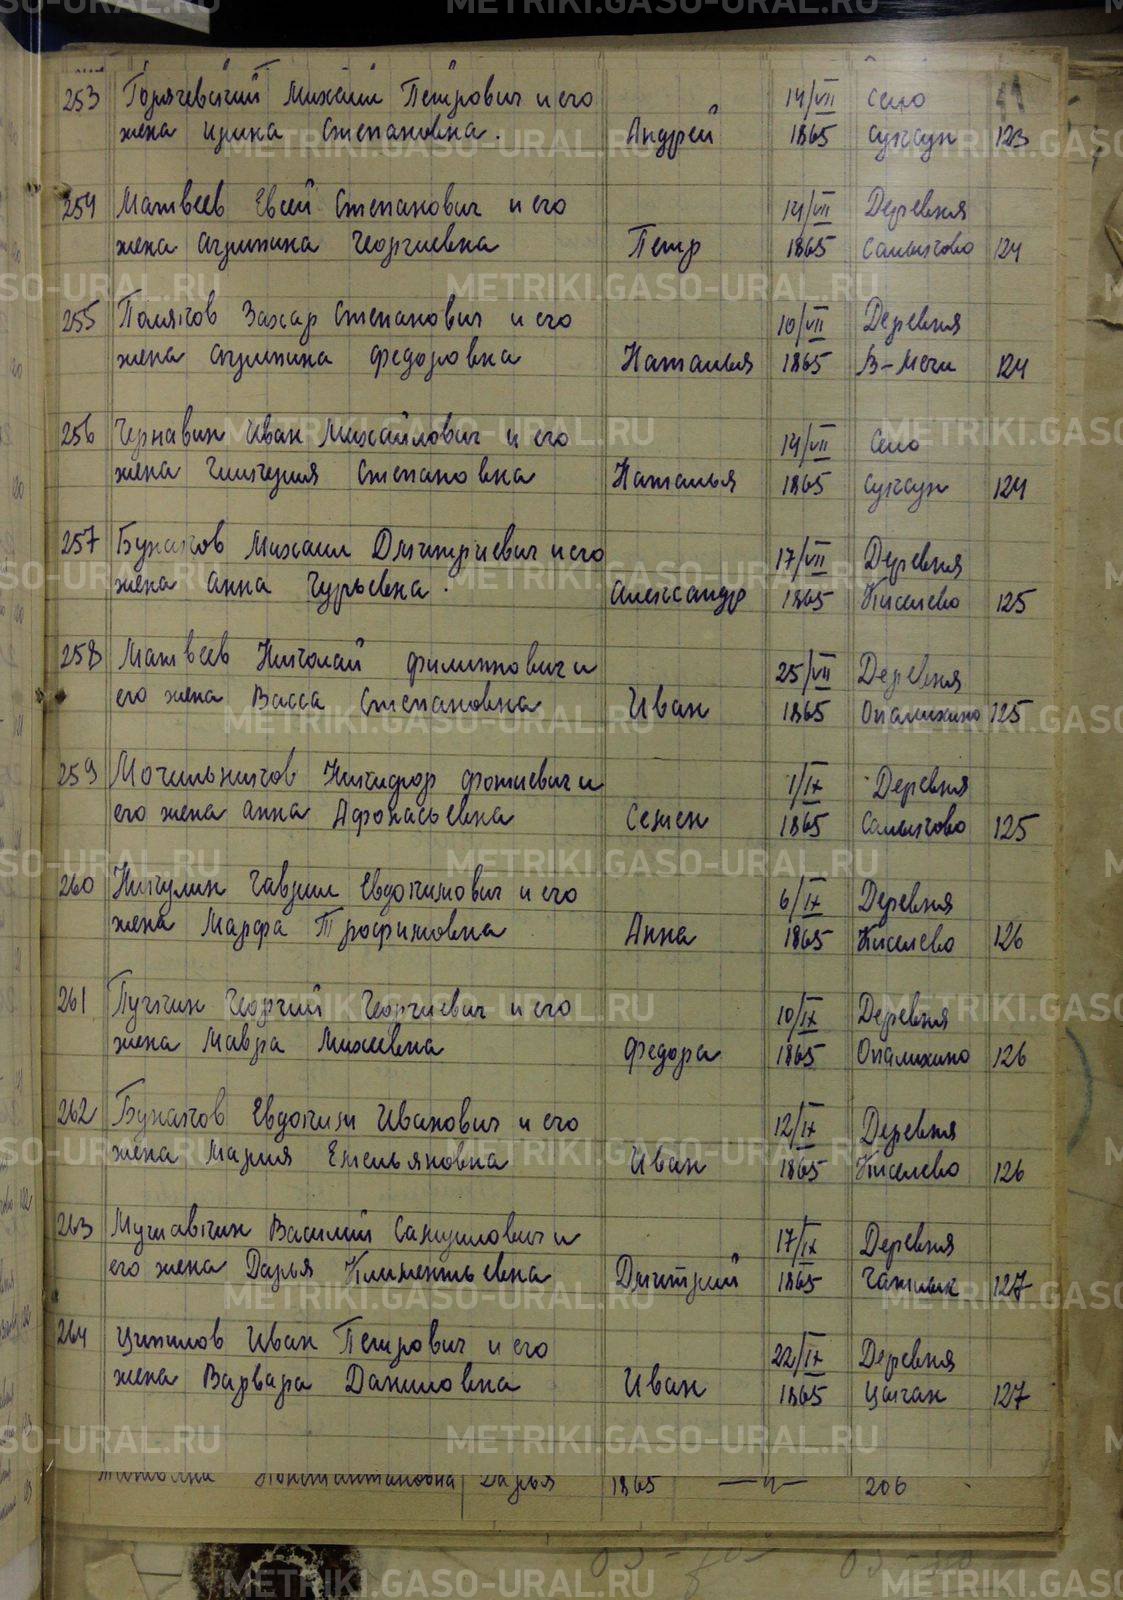 253 Горячевский Михаил Петрович и его 14/VII Село
жена Ирина Степановна. Андрей 1865 Суксун 123
254 Матвеев Евсей Степанович и его 14/VII Деревня
жена Агрипина Георгиевна Петр 1865 Салыково 124
255 Поляков Захар Степанович и его 10/VII Деревня
жена Агрипина Федоровна Наталья 1865 В-Мечи 124
256 Чернавин Иван Михайлович и его 14/VII Село
жена Гликерия Степановна Наталья 1865 Суксун 124
257 Бунаков Михаил Дмитриевич и его 17/VII Деревня
жена Анна Гурьевна. Александр 1865 Киселево 125
258 Матвеев Николай Филиппович и 25/VII Деревня
его жена Васса Степановна Иван 1865 Опалихино 125
259 Мочильников Никифор Фокиевич и 1/IX Деревня
его жена Анна Афонасьевна Семен 1865 Салыково 125
260 Никулин Гаврил Евдокимович и его 6/IX Деревня
жена Марфа Трофимовна Анна 1865 Киселево 126
261 Пучкин Георгий Георгиевич и его 10/IX Деревня
жена Мавра Михеевна Федора 1865 Опалихино 126
262 Бунаков Евдоким Иванович и его 12/IX Деревня
жена Мария Емельяновна Иван 1865 Киселево 126
263 Василий Самуилович и 17/IX Деревня
его жена Дарья Климентьевна Дмитрий 1865 127
264 Ципилов Иван Петрович и его 22/IX Деревня
жена Варвара Даниловна Иван 1865 Цыган 127
Константиновна Дарья 1865 —„— 206
METRIKI.GASO-URAL.RU